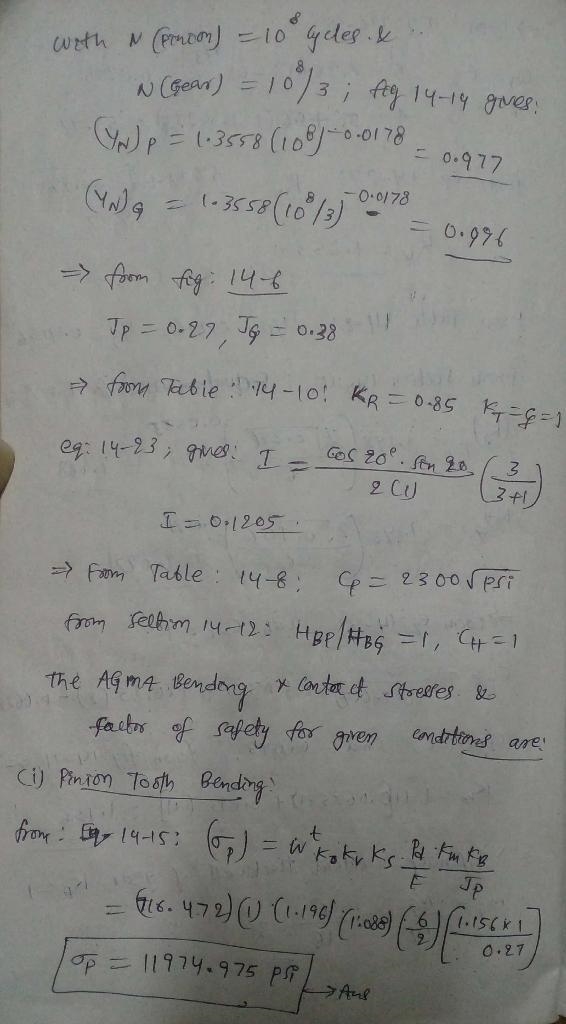 with N (Pinion) = 10⁸ Cycles. &
N (Gear) = 10⁸/3 ; fig 14-14 gives:
(Y_N)P = 1.3558 (10⁸)^-0.0178 = 0.977
(Y_N)G = 1.3558 (10⁸/3)^-0.0178 = 0.996
⇒ from fig: 14-6
J_P = 0.27, J_G = 0.38
⇒ from Table: 14-10: K_R = 0.85 K_T = C_f = 1
eq: 14-23; gives: I = Cos 20°. Sin 20 / 2(1) (3 / 3+1)
I = 0.1205.
⇒ From Table: 14-8: Cp = 2300 √psi
from Section 14-12: H_BP/H_BG = 1, C_H = 1
The AGMA Bending & Contact stresses &
factor of safety for given conditions are:
(i) Pinion Tooth Bending:
from: Eq 14-15: (σ_P) = W^t K_o K_v K_s . P_d / F . K_m K_B / J_P
= (716.472)(1) (1.196) (1.088) (6/2) [1.156 x 1 / 0.27]
σ_P = 11974.975 psi → Ans